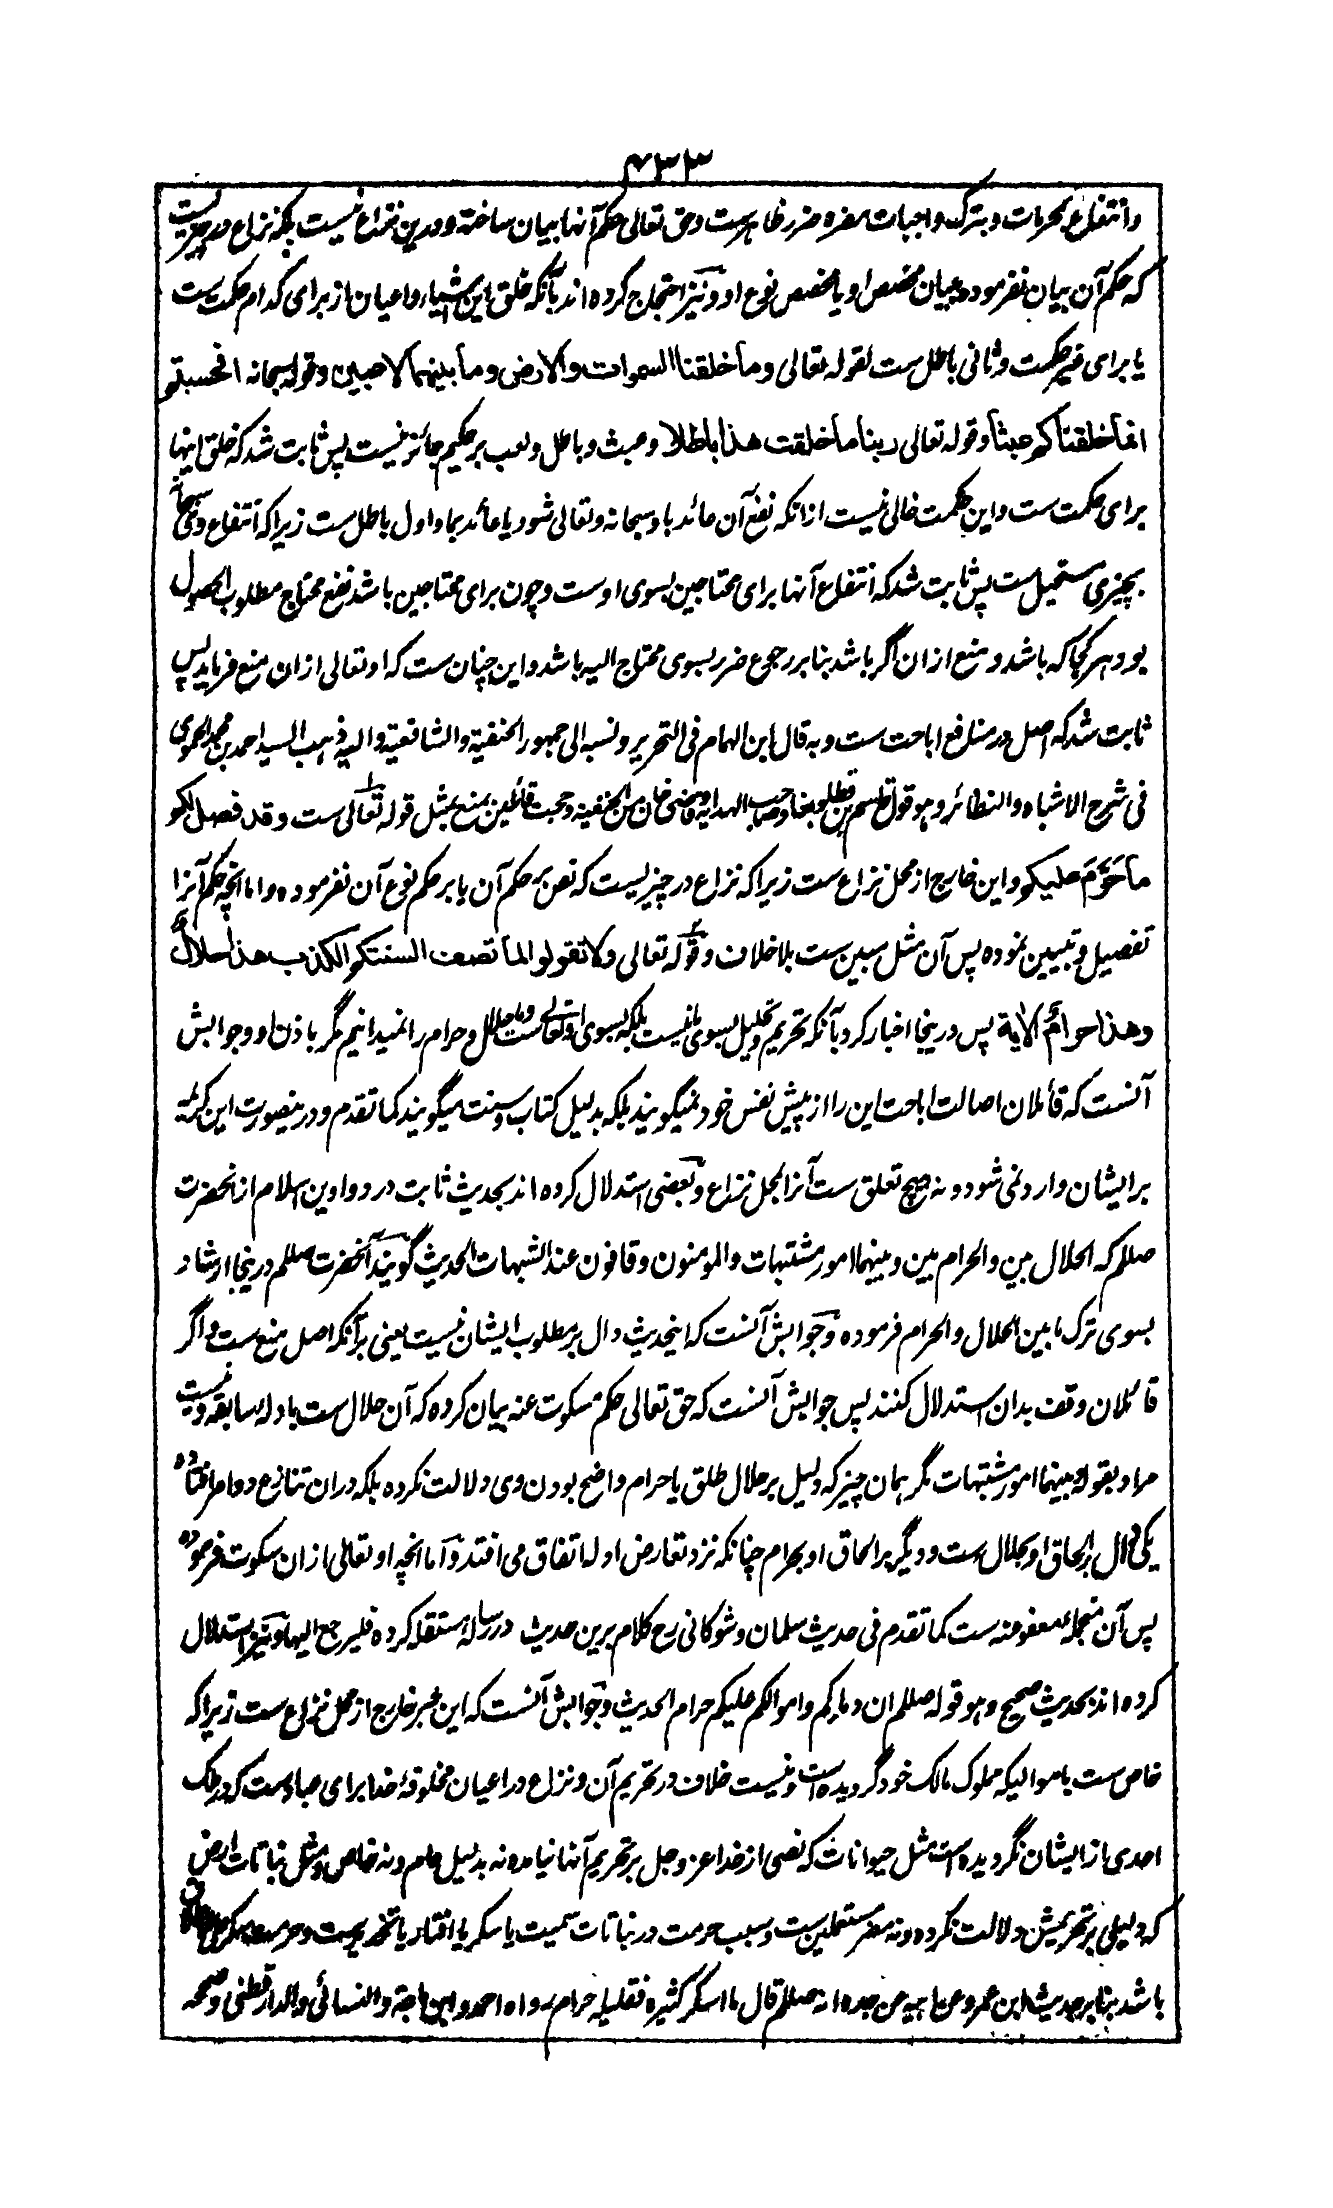 ۴۳۳
وانتفاع بمحرمات و بترک واجبات مضره ضرر ظاهرست وحق تعالی حکم آنها بیان ساخته و درین نزاع نیست بلکه نزاع در چیزیست
که حکم آن بیان نفرموده ببیان مخصص او یا مخصص نوع او و نیز احتجاج کرده اند بآنکه خلق این اشیاء و اعیان از برای کدام حکمت ست
یا برای غیر حکمت و ثانی باطل ست لقوله تعالی وما خلقنا السموات والارض وما بینهما لاعبین وقوله سبحانه افحسبتم
انما خلقناکم عبثا وقوله تعالی ربنا ما خلقت هذا باطلا وعبث و باطل و لعب بر حکیم جائز نیست پس ثابت شد که خلق اینها
برای حکمت ست و این حکمت خالی نیست ازانکه نفع آن عائد باو سبحانه وتعالی شود یا عائد بما و اول باطل ست زیراکه انتفاع وی سبحانه
بچیزی مستحیل ست پس ثابت شد که انتفاع آنها برای محتاجین بسوی اوست و چون برای محتاجین باشد نفع محتاج مطلوب الحصول
بود هر کجا که باشد و منع ازان اگر باشد بنابر رجوع ضرر بسوی محتاج الیه باشد و این چنان ست که او تعالی ازان منع فرماید پس
ثابت شد که اصل در منافع اباحت ست و به قال ابن الهمام فی التحریر و نسبه الی جمهور الحنفیة والشافعیة والیه ذهب السید احمد بن محمد الحموی
فی شرح الاشباه والنظائر و هو قول قاسم بن قطلوبغا و صاحب الهدایه و قاضی خان من الحنفیه و حجت قائلین بمنع بمثل قوله تعالی ست وقد فصل لکم
ما حرّم علیکم و این خارج از محل نزاع ست زیراکه نزاع در چیزیست که نص بر حکم آن یا بر حکم نوع آن نفرموده و اما انچه حکم آنرا
تفصیل و تبیین نموده پس آن مثل مبین ست بلا خلاف و قوله تعالی ولا تقولوا لما تصف السنتکم الکذب هذا حلال
وهذا حرام الآیة پس درینجا اخبار کرد بآنکه تحریم و تحلیل بسوی ما نیست بلکه بسوی او تعالی ست و ما حلال و حرام را نمیدانیم مگر باذن او و جوابش
آنست که قائلان اصالت اباحت این را از پیش نفس خود نمیگویند بلکه بدلیل کتاب و سنت میگویند کما تقدم و درینصورت این کریمه
برایشان وارد نمی شود و نه هیچ تعلق ست آنرا بمحل نزاع و بعضی استدلال کرده اند بحدیث ثابت در دواوین اسلام از آنحضرت
صلعم که الحلال بین والحرام بین و بینهما امور مشتبهات والمومنون وقافون عند الشبهات الحدیث گویند آنحضرت صلعم درینجا ارشاد
بسوی ترک ما بین الحلال والحرام فرموده و جوابش آنست که اینحدیث دال بر مطلوب ایشان نیست یعنی برآنکه اصل منع ست و اگر
قائلان وقف بدان استدلال کنند پس جوابش آنست که حق تعالی حکم مسکوت عنه بیان کرده که آن حلال ست بادله سابقه و نیست
مراد بقوله و بینهما امور مشتبهات مگر همان چیز که دلیل بر حلال طلق یا حرام واضح بودن وی دلالت نکرده بلکه دران تنازع دو امر افتاده
یکی دال بر الحاق او بحلال ست و دیگر بر الحاق او بحرام چنانکه نزد تعارض ادله اتفاق می افتد و اما انچه او تعالی ازان سکوت فرموده
پس آن منجمله معفوعنه ست کما تقدم فی حدیث سلمان و شوکانی رح کلام برین حدیث در رساله مستقله کرده فلیرجع الیها و نیز استدلال
کرده اند بحدیث صحیح و هو قوله صلعم ان دماءکم و اموالکم علیکم حرام الحدیث و جوابش آنست که این خبر خارج از محل نزاع ست زیراکه
خاص ست باموالیکه مملوک مالک خود گردیده است و نیست خلاف در تحریم آن و نزاع در اعیان مخلوقۀ خدا برای عبادست که در ملک
احدی از ایشان نگردیده است مثل حیوانات که نصی از خدا عز و جل بر تحریم آنها نیامده نه بدلیل عام و نه خاص و مثل نباتات ارض
که دلیلی بر تحریمش دلالت نکرده و نه مضر مستعملین ست و سبب حرمت در نباتات سمیت یا سکر یا افتار یا تخدیرست و حرمت مسکر
باشد بنابر حدیث ابن عمرو عن ابیه عن جده انه صلعم قال ما اسکر کثیره فقلیله حرام رواه احمد وابن ماجة والنسائی والدارقطنی وصححه